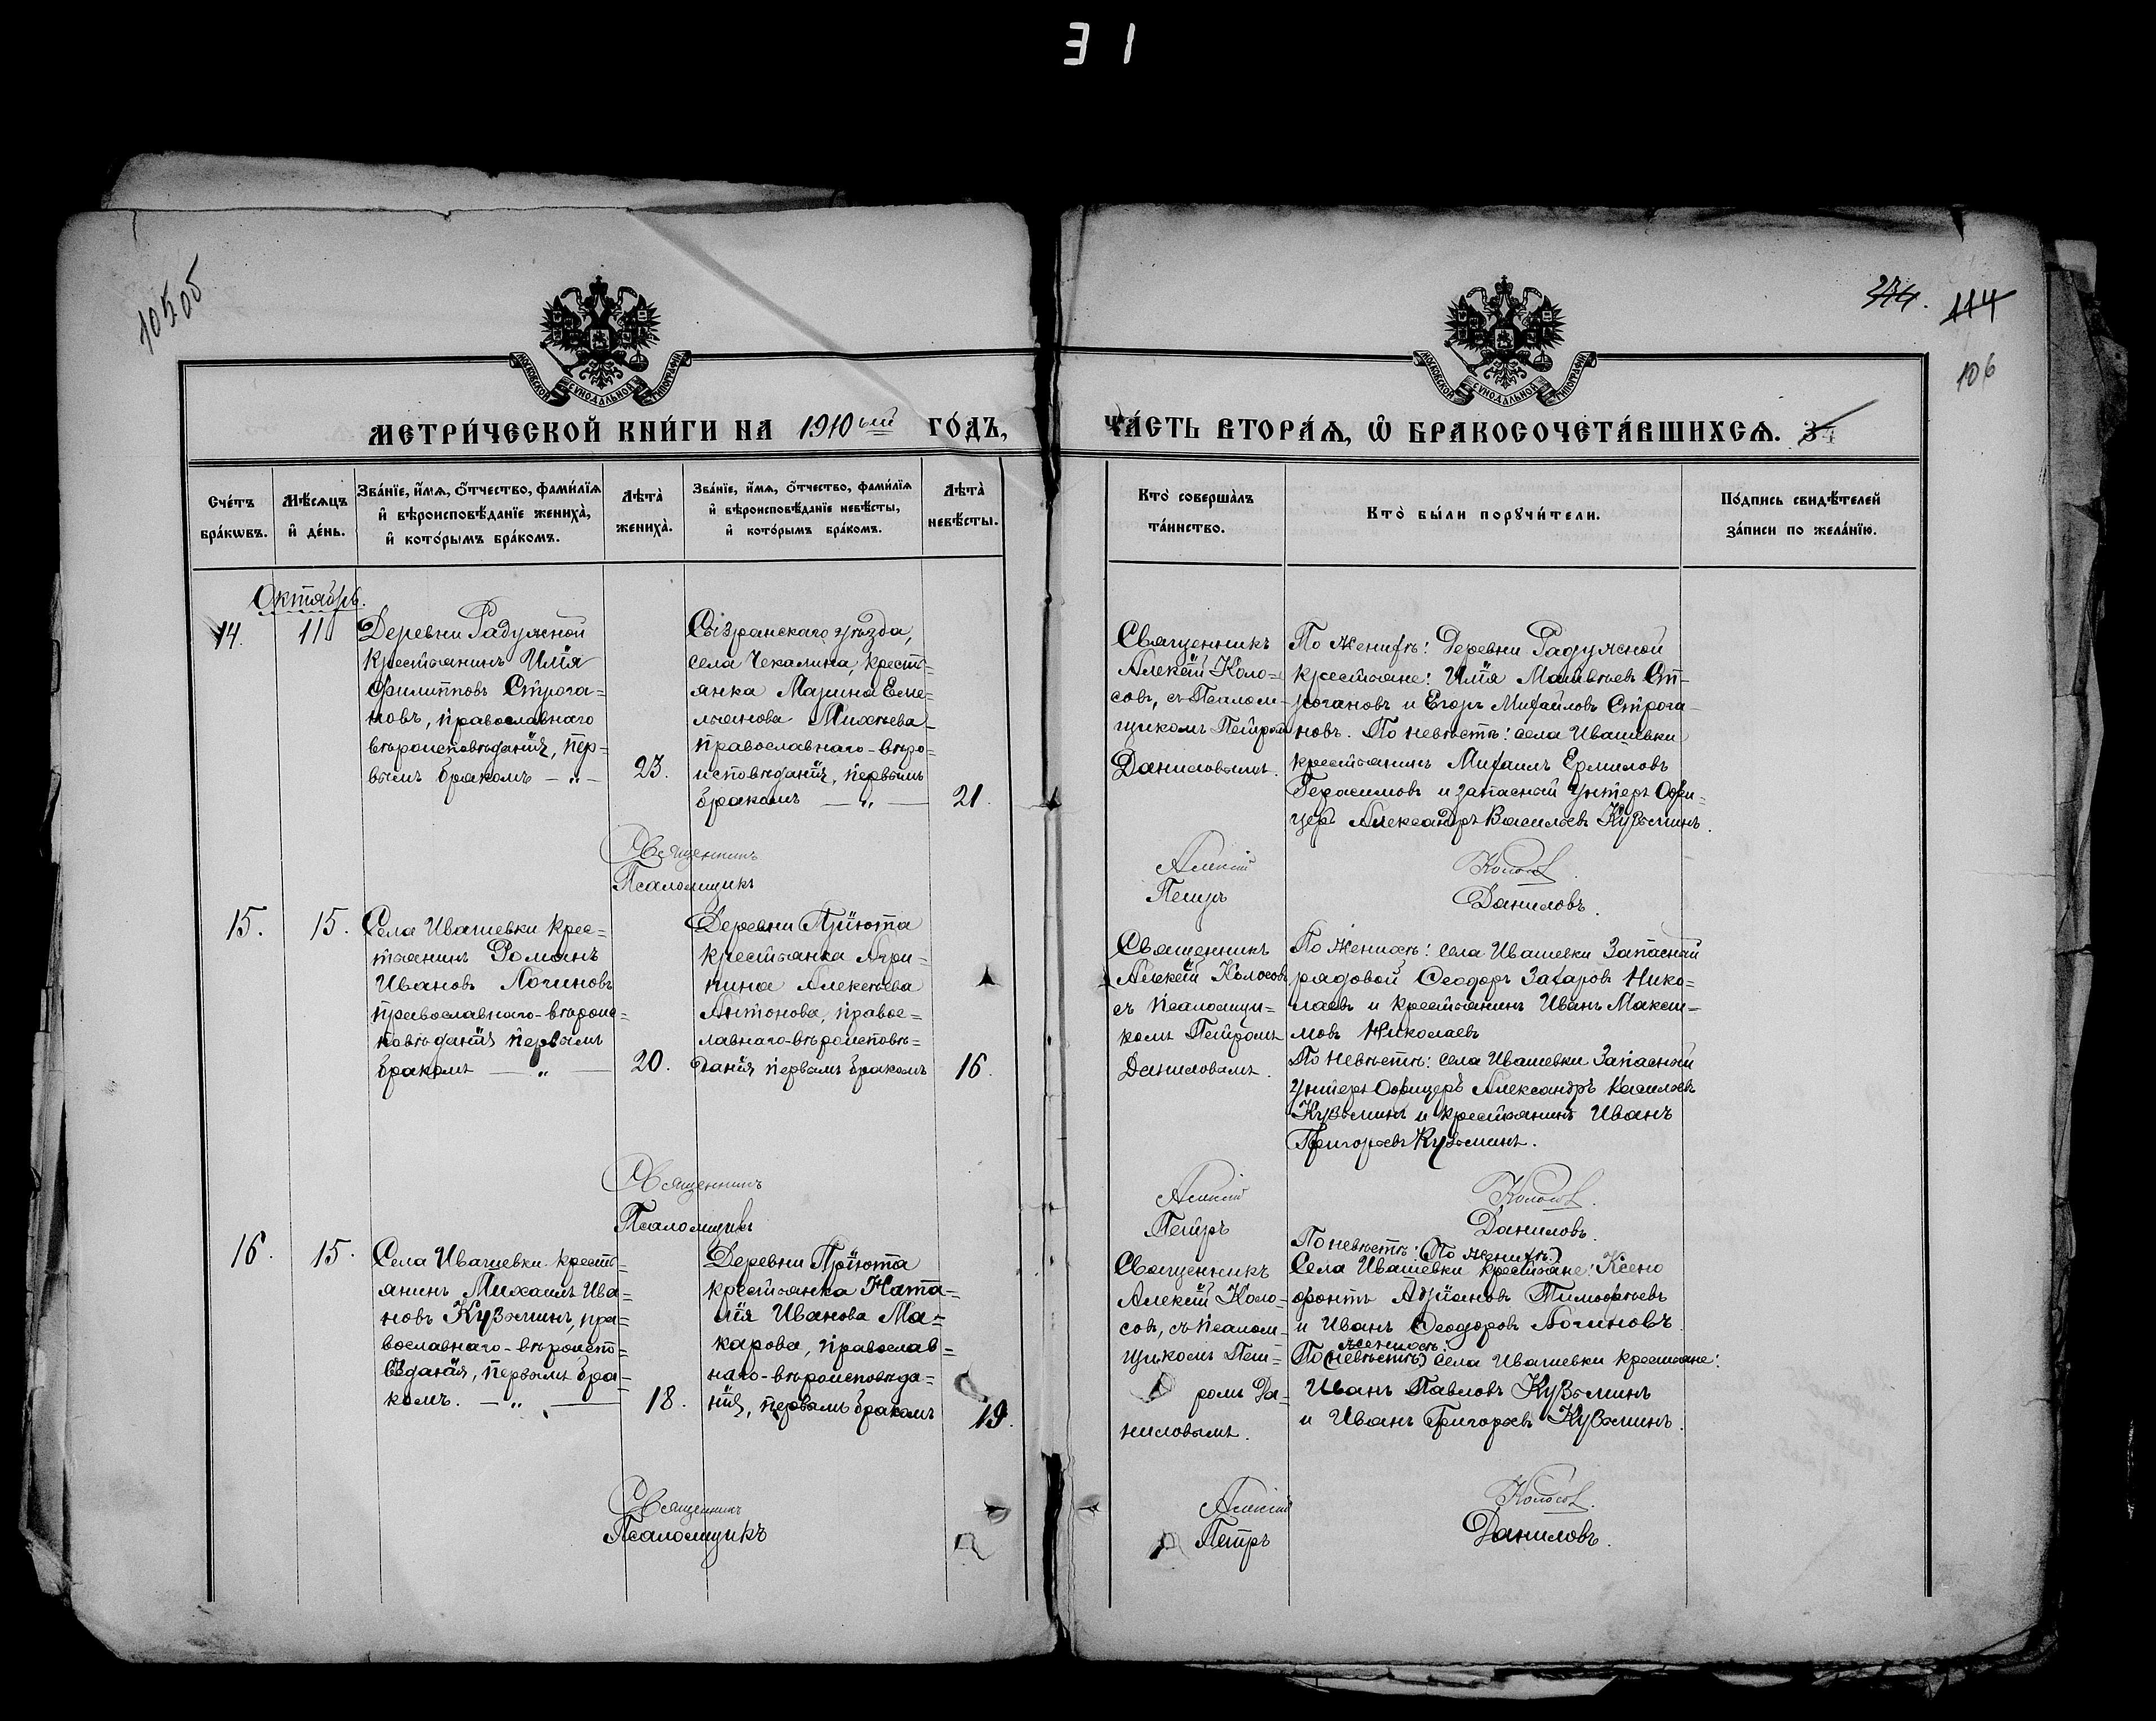 31
10505
274. 114
106
МОСКОВСКОЙ СУНОДАЛЬНОЙ ТИПОГРАФІИ
МОСКОВСКОЙ СУНОДАЛЬНОЙ ТИПОГРАФІИ
МЕТРИ́ЧЕСКОЙ КНИ́ГИ НА 1910ый ГО́ДЪ,
ЧА́СТЬ ВТОРА́Ѧ, Ѽ БРАКОСОЧЕТА́ВШИХСѦ. 34
Сче́тъ бра́кѡвъ.
Мѣ́сѧцъ и҆ де́нь.
Зва́нїе, и҆́мѧ, ѻ҆́тчество, фами́лїѧ
и҆ вѣроисповѣ́данїе жениха̀,
и҆ кото́рымъ бра́комъ.
Лѣ́та̀ жениха̀.
Зва́нїе, и҆́мѧ, ѻ҆́тчество, фами́лїѧ
и҆ вѣроисповѣ́данїе невѣ́сты,
и҆ кото́рымъ бра́комъ.
Лѣ́та̀ невѣ́сты.
Кто̀ соверша̀лъ та́инство.
Кто̀ бы́ли порꙋчи́тели.
По́дпись свидѣ́телей
за́писи по жела́нїю.
Октябрь.
14.
11
Деревни Радужной
крестьянинъ Илія
Филипповъ Строга=
новъ, православнаго
вѣроисповѣданія, пер=
вымъ бракомъ — „ —
23.
Сызранскаго уѣзда,
села Чекалина, кресть=
янка Марина Еме=
льянова Михѣева
православнаго-вѣро=
исповѣданія, первымъ
бракомъ — „ —
21.
Священникъ
Алексій Коло=
совъ, съ Псалом=
щикомъ Петромъ
Даниловымъ.
По женихѣ: Деревни Радужной
крестьяне: Илія Матвѣевъ Ст=
рогановъ и Егоръ Михайловъ Строга=
новъ. По невѣстѣ: села Ивашевки
крестьянинъ Михаилъ Ермиловъ
Герасимовъ и запасной Унтеръ Офи=
церъ Александръ Васильевъ Кузьминъ.
Священникъ Алексій Колосов.
Псаломщикъ Петръ Даниловъ.
15.
15.
Села Ивашевки крес=
тьянинъ Романъ
Ивановъ Логиновъ
православнаго-вѣроис=
повѣданія первымъ
бракомъ — „ —
20.
Деревни Пріюта
крестьянка Агри=
пина Алексѣева
Антонова, правос=
лавнаго-вѣроисповѣ=
данія первымъ бракомъ
16.
Священникъ
Алексій Колосовъ
съ Псаломщи=
комъ Петромъ
Даниловымъ.
По женихѣ: села Ивашевки Запасной
рядовой Ѳеодоръ Захаровъ Нико=
лаевъ и крестьянинъ Иванъ Макси=
мовъ Николаевъ
По невѣстѣ: села Ивашевки Запасной
Унтеръ Офицеръ Александръ Васильевъ
Кузьминъ и крестьянинъ Иванъ
Григорьевъ Кузьминъ.
Священникъ Алексій Колосов.
Псаломщикъ Петръ Даниловъ.
16.
15.
Села Ивашевки кресть=
янинъ Михаилъ Ива=
новъ Кузьминъ, пра=
вославнаго-вѣроиспо=
вѣданія, первымъ бра=
комъ. — „ —
18.
Деревни Пріюта
крестьянка Ната=
лія Иванова Ма=
карова, православ=
наго-вѣроисповѣда=
нія, первымъ бракомъ
19.
Священникъ
Алексій Коло=
совъ, съ псалом=
щикомъ Пет=
ромъ Да=
ниловымъ.
По невѣстѣ: (По женихѣ:)
Села Ивашевки крестьяне: Ксено
фонтъ Адріановъ Тимофѣевъ
и Иванъ Ѳеодоровъ Логиновъ.
женихѣ:
По (невѣстѣ) села Ивашевки крестьяне:
Иванъ Павловъ Кузьминъ
и Иванъ Григорьевъ Кузьминъ.
Священникъ Алексій Колосов.
Псаломщикъ Петръ Даниловъ.